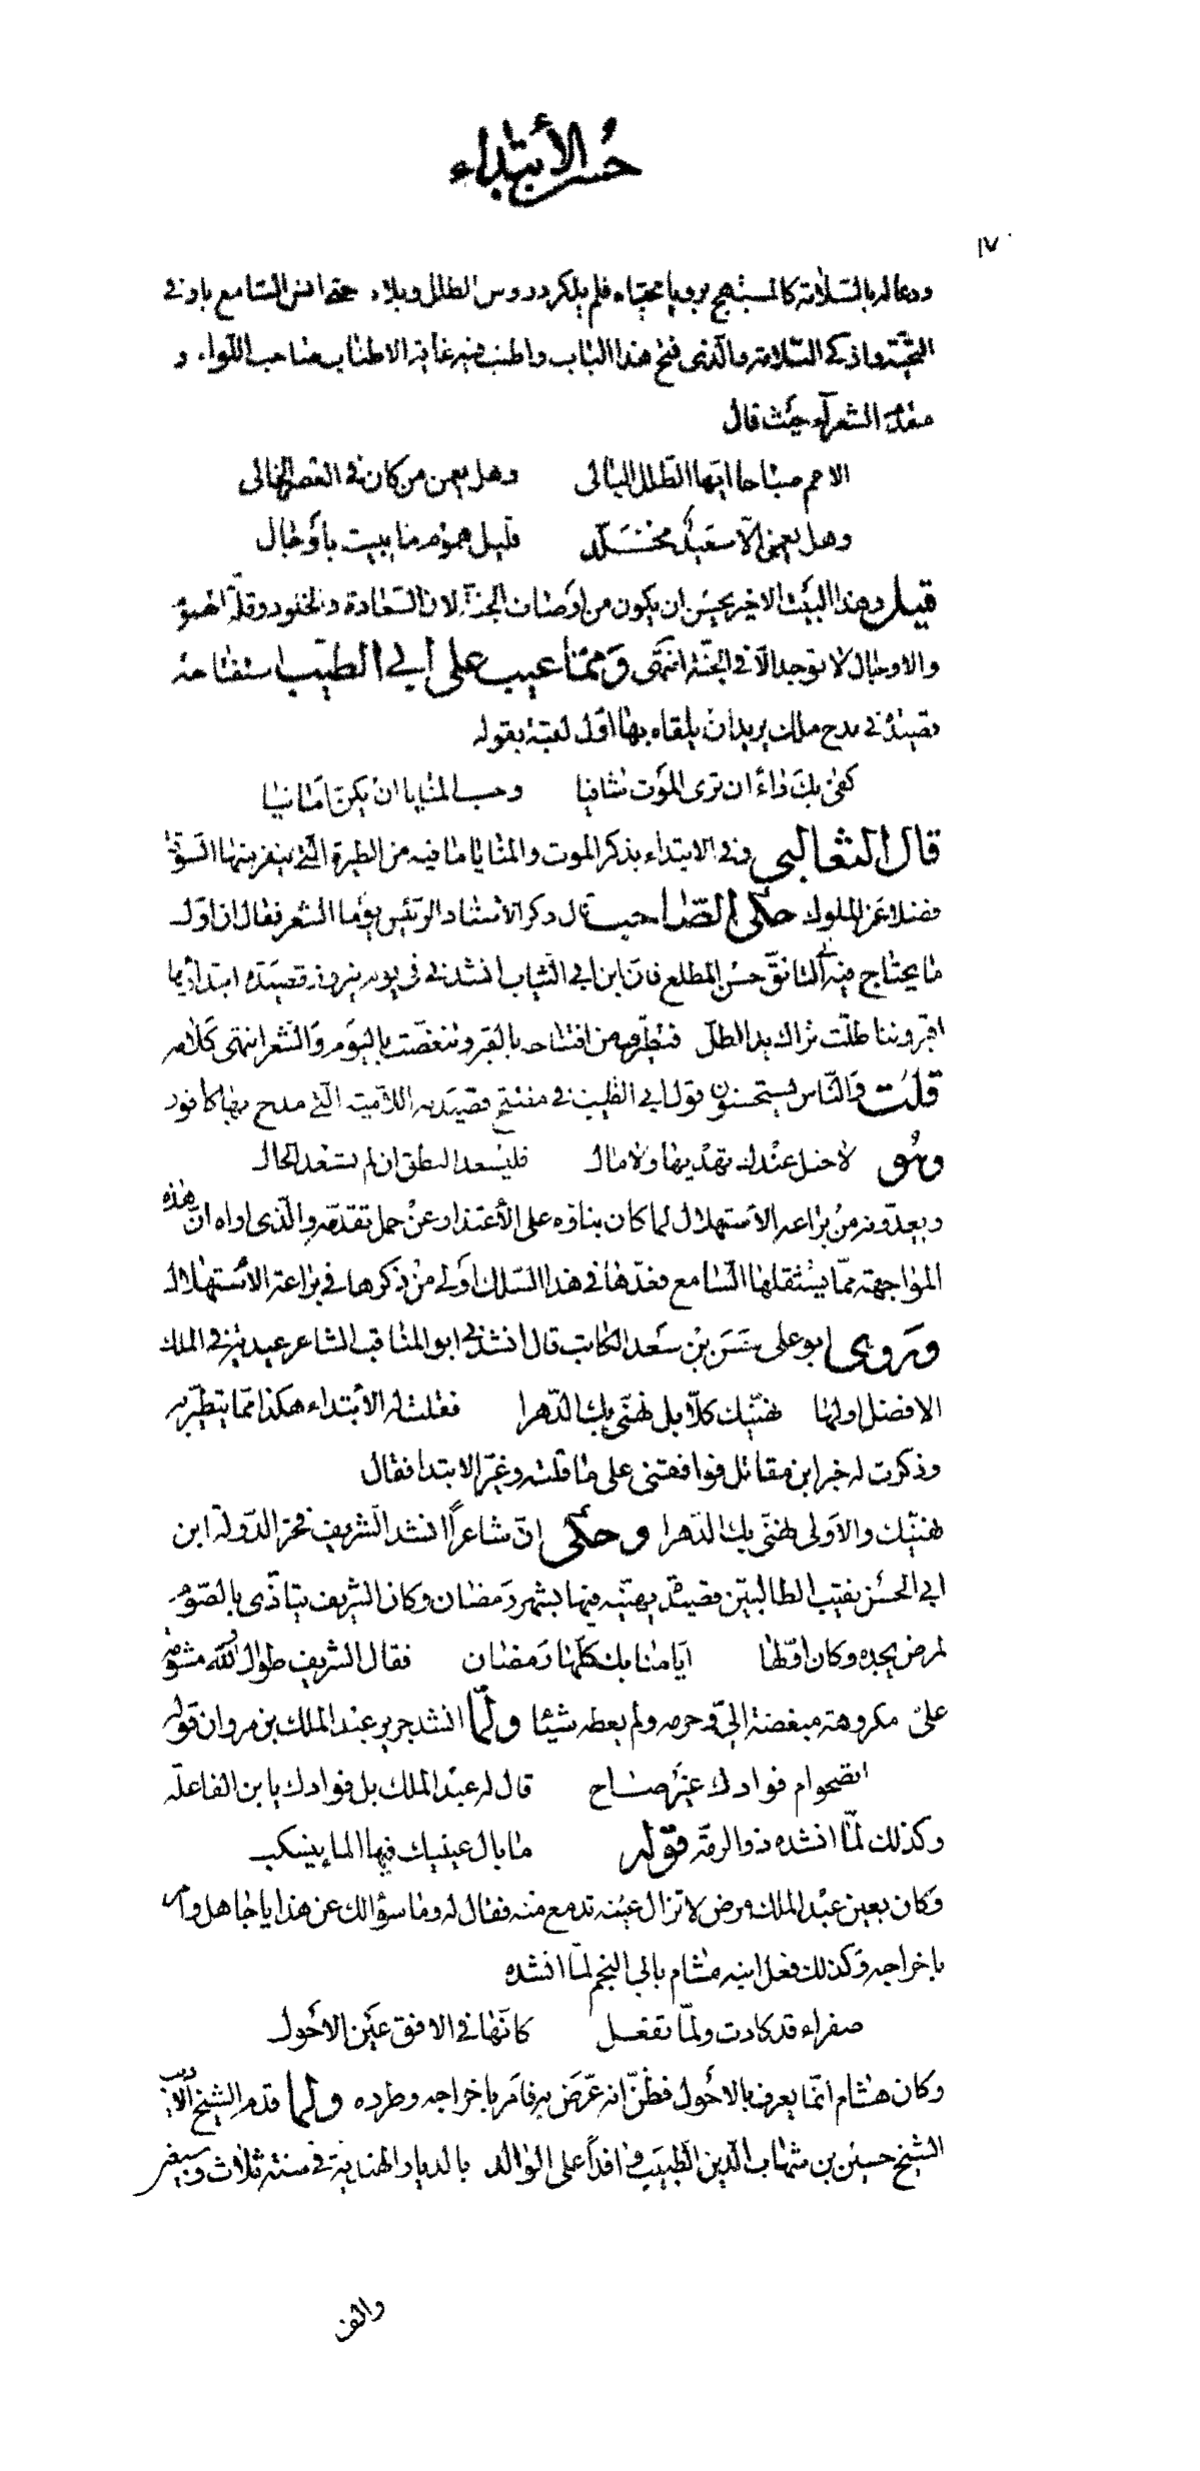 حسن الأبتداء
١٧
ودعا له بالسلامة كالمبتهج برؤيا محياه فلم يذكر دروس الطلل وبلاه حتى انس السامع باوفى
التحية وازكى السلامة والذى فتح هذا الباب واطنب فيه غاية الاطناب صاحب اللواء و
مقدم الشعرآء حيث قال
الا عم صباحا ايها الطلل البالى وهل يعمن من كان فى العصر الخالى
وهل يعمن الّا سعيدٌ مخلّد قليل هموم ما يبيت بأوجال
قيل وهذا البيت الاخير يحسن ان يكون من اوصاف الجنة لان السعادة والخلود وقلّة الهموم
والاوجال لا توجد الّا فى الجنّة انتهى وممّا عيب على ابي الطيّب استفتاحه
قصيدة فى مدح ملك يريد ان يلقاه بها اول لقية بقوله
كفى بك داءً ان ترى الموت شافيا وحسب المنايا ان يكنّ امانيا
قال الثعالبى وفى الابتداء بذكر الموت والمنايا ما فيه من الطيرة التى ينفر منها السوقة
فضلا عن الملوك حكى الصاحب قال ذكر الاستاد الرئيس يوما الشعر فقال ان اول
ما يحتاج فيه الى التانّق حسن المطلع فان ابن ابي الثياب انشدنى فى يوم نيروز قصيدة ابتداؤها
اقبر وما طلّت ثراك يد الطلّ فتطيرت من افتتاحه بالقبر وتنغصت باليوم والشعر انتهى كلامه
قلت والناس يستحسنون قول ابي الطيب فى مفتتح قصيدته اللاميّة التى مدح بها كافور
وهو لا خيل عندك تهديها ولا مال فليسعد النطق ان لم تسعد الحال
ويعدّونه من براعة الأستهلال لما كان بناؤه على الأعتذار عن حمل تقدمه والّذى اراه انّ هذه
المواجهة ممّا يستثقلها السّامع فعدّها فى هذا السلك اولى من ذكرها فى براعة الأستهلال
وروى ابو على حسن بن سعد الكاتب قال انشدنى ابو المناقب الشاعر عيدية فى الملك
الافضل اولها نهنّيك كلّا بل نهنّى بك الدّهرا فقلت له الأبتداء هكذا ممّا يتطيّر به
وذكرت له خبر ابن مقاتل فوافقنى على ما قلته وغيّر الابتدا فقال
نهنّيك والاولى نهنّى بك الدّهرا وحكى انّ شاعراً انشد الشريف فخر الدّولة ابن
ابي الحسن نقيب الطالبيّين قصيدة يهنّيه فيها بشهر رمضان وكان الشريف يتأذّى بالصوم
لمرض يجده وكان اوّلها ايّامنا بك كلّها رمضان فقال الشريف طوال والله مشومة
علىّ مكروهة مبغضة الىّ وحرمه ولم يعطه شيئا ولمّا انشد جرير عبد الملك بن مروان قوله
اتصحوا ام فوادك غير صاح قال له عبد الملك بل فوادك يا بن الفاعلة
وكذلك لمّا انشده ذو الرمّة قوله ما بال عينيك فيها الماء ينسكب
وكان بعين عبد الملك مرض لا تزال عينه تدمع منه فقال له وما سؤالك عن هذا يا جاهل وامر
باخراجه وكذلك فعل ابنه هشام بابي النجم لمّا انشده
صفراء قد كادت ولمّا تفعل كانّها فى الافق عين الاحول
وكان هشام انّما يعرف بالاحول فظنّ انه عرّض به فامر باخراجه وطرده ولما قدم الشيخ الاديب
الشيخ حسين بن شهاب الدين الطبيب وافداً على الوالد بالديار الهندية فى سنة ثلاث وسبعين
والف